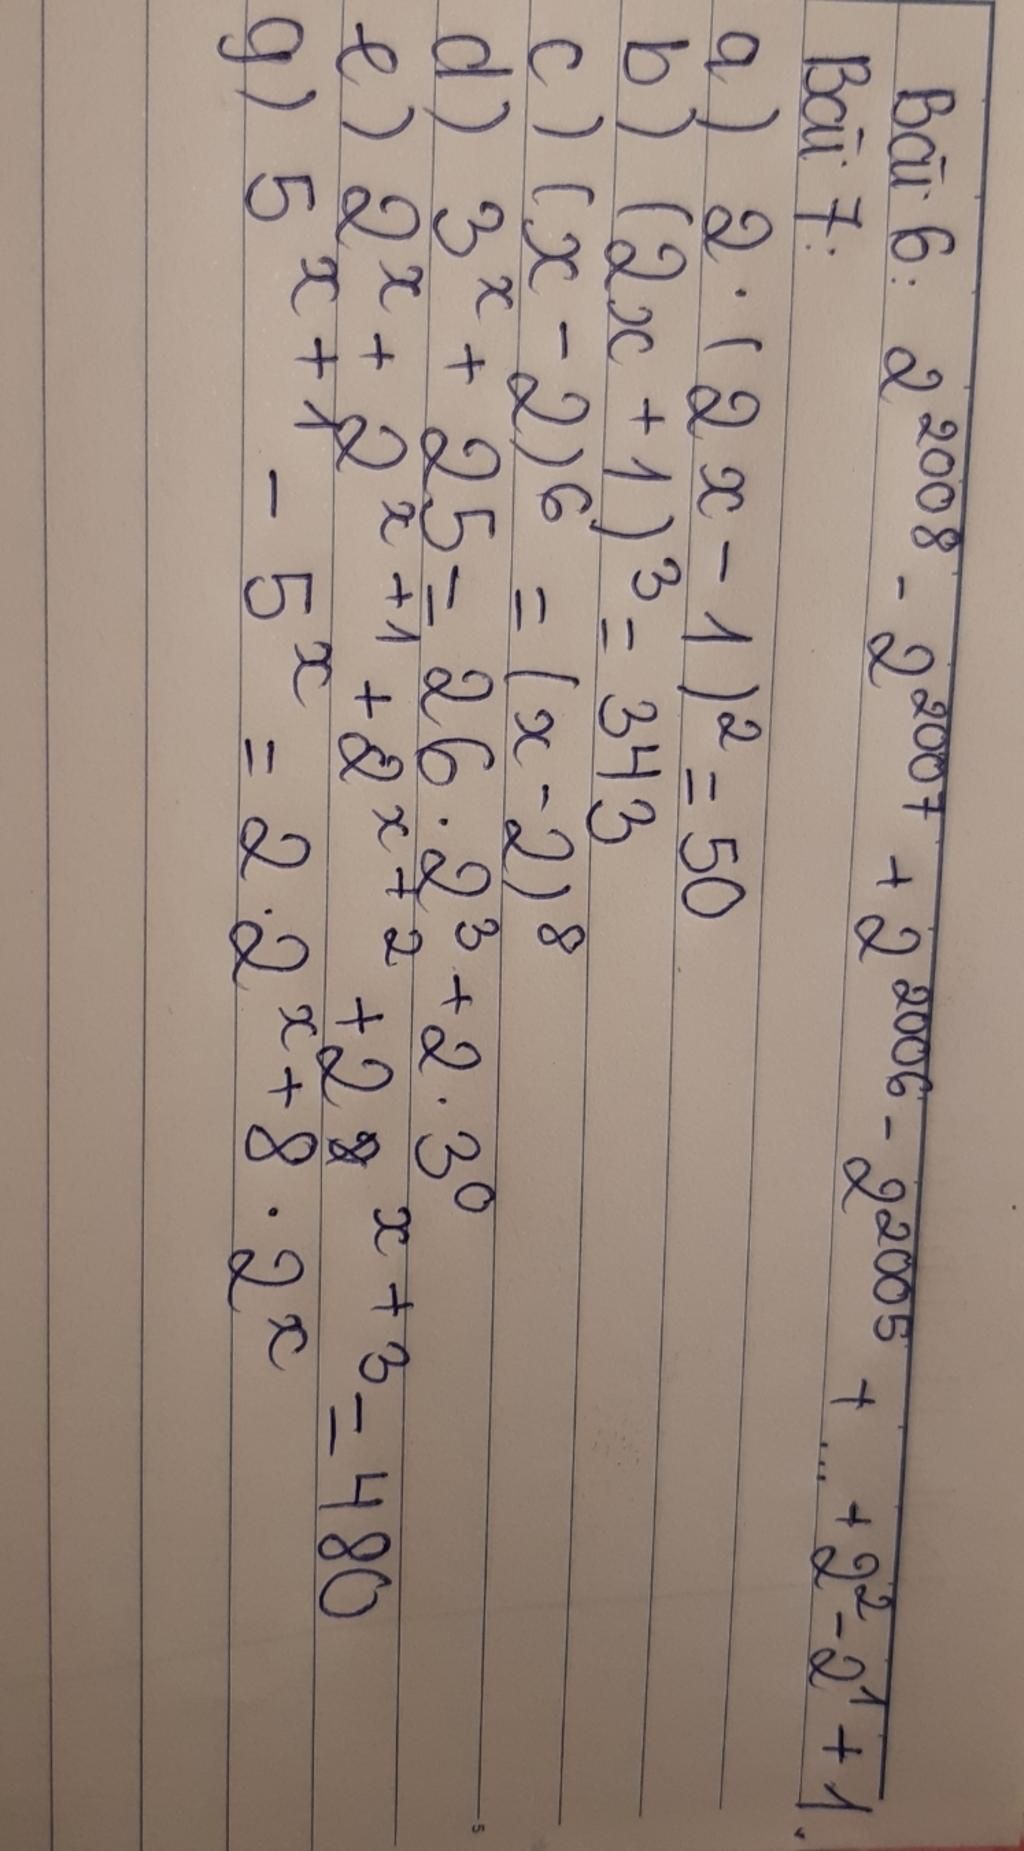 Bài 6: 2²⁰⁰⁸ - 2²⁰⁰⁷ + 2²⁰⁰⁶ - 2²⁰⁰⁵ + ... + 2² - 2¹ + 1
Bài 7:
a) 2 · (2x - 1)² = 50
b) (2x + 1)³ = 343
c) (x - 2)⁶ = (x - 2)⁸
d) 3ˣ + 25 = 26 · 2³ + 2 · 3⁰
e) 2ˣ + 2ˣ⁺¹ + 2ˣ⁺² + 2ˣ⁺³ = 480
g) 5ˣ⁺¹ - 5ˣ = 2 · 2ˣ + 8 · 2ˣ